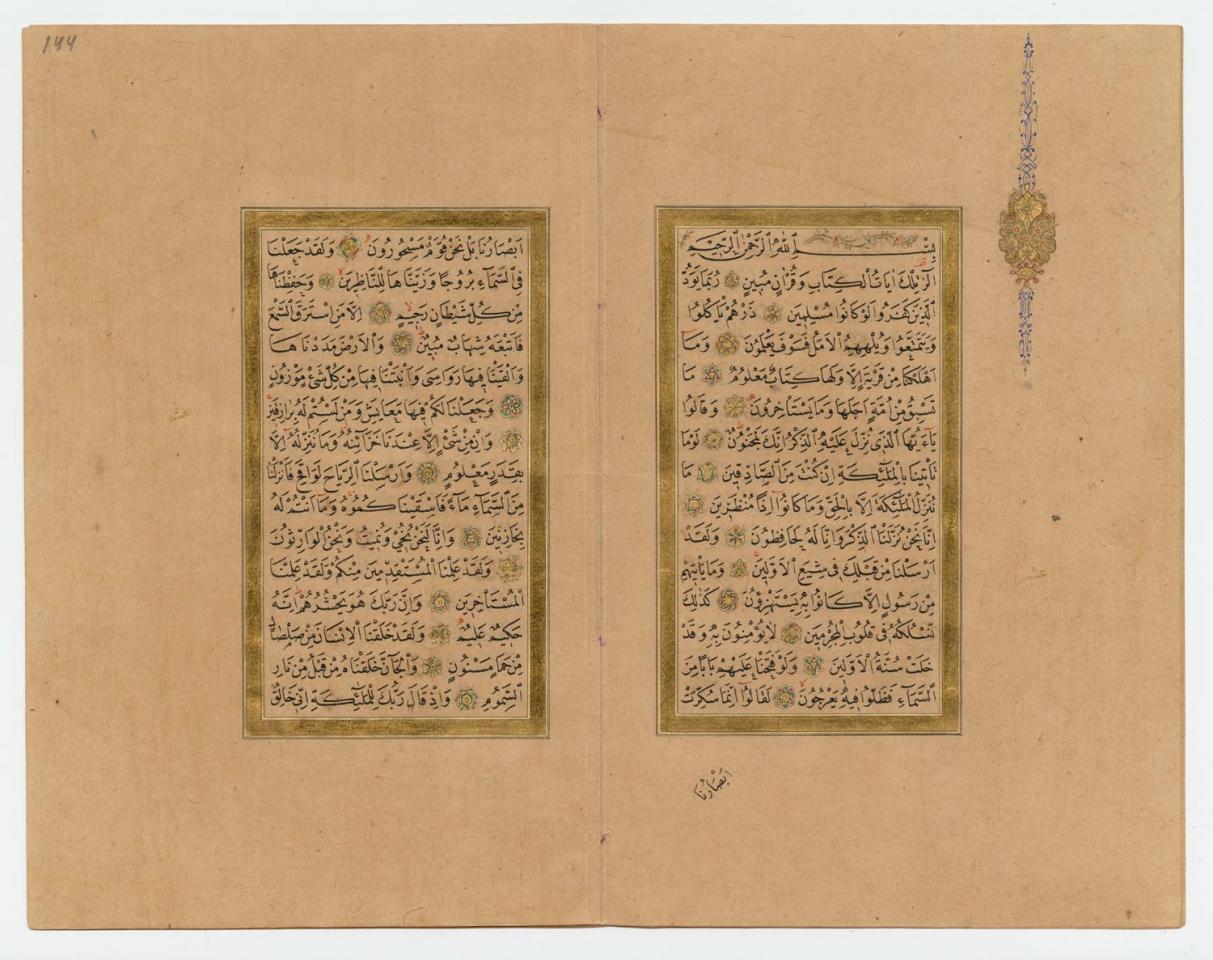 بِسْمِ اللّٰهِ الرَّحْمٰنِ الرَّحٖيمِ
الٓرٰ تِلْكَ اٰيَاتُ الْكِتَابِ وَقُرْاٰنٍ مُبٖينٍ رُبَمَا يَوَدُّ
الَّذٖينَ كَفَرُوا لَوْ كَانُوا مُسْلِمٖينَ ذَرْهُمْ يَاْكُلُوا
وَيَتَمَتَّعُوا وَيُلْهِهِمُ الْاَمَلُ فَسَوْفَ يَعْلَمُونَ وَمَا
اَهْلَكْنَا مِنْ قَرْيَةٍ اِلَّا وَلَهَا كِتَابٌ مَعْلُومٌ مَا
تَسْبِقُ مِنْ اُمَّةٍ اَجَلَهَا وَمَا يَسْتَاْخِرُونَ وَقَالُوا
يَٓا اَيُّهَا الَّذٖى نُزِّلَ عَلَيْهِ الذِّكْرُ اِنَّكَ لَمَجْنُونٌ لَوْمَا
تَاْتٖينَا بِالْمَلٰٓئِكَةِ اِنْ كُنْتَ مِنَ الصَّادِقٖينَ مَا
نُنَزِّلُ الْمَلٰٓئِكَةَ اِلَّا بِالْحَقِّ وَمَا كَانُٓوا اِذًا مُنْظَرٖينَ
اِنَّا نَحْنُ نَزَّلْنَا الذِّكْرَ وَاِنَّا لَهُ لَحَافِظُونَ وَلَقَدْ
اَرْسَلْنَا مِنْ قَبْلِكَ فٖى شِيَعِ الْاَوَّلٖينَ وَمَا يَاْتٖيهِمْ
مِنْ رَسُولٍ اِلَّا كَانُوا بِهٖ يَسْتَهْزِؤُنَ كَذٰلِكَ
نَسْلُكُهُ فٖى قُلُوبِ الْمُجْرِمٖينَ لَا يُؤْمِنُونَ بِهٖ وَقَدْ
خَلَتْ سُنَّةُ الْاَوَّلٖينَ وَلَوْ فَتَحْنَا عَلَيْهِمْ بَابًا مِنَ
السَّمَٓاءِ فَظَلُّوا فٖيهِ يَعْرُجُونَ لَقَالُٓوا اِنَّمَا سُكِّرَتْ
اَبْصَارُنَا
١٩٩
اَبْصَارُنَا بَلْ نَحْنُ قَوْمٌ مَسْحُورُونَ وَلَقَدْ جَعَلْنَا
فِى السَّمَٓاءِ بُرُوجًا وَزَيَّنَّاهَا لِلنَّاظِرٖينَ وَحَفِظْنَاهَا
مِنْ كُلِّ شَيْطَانٍ رَجٖيمٍ اِلَّا مَنِ اسْتَرَقَ السَّمْعَ
فَاَتْبَعَهُ شِهَابٌ مُبٖينٌ وَالْاَرْضَ مَدَدْنَاهَا
وَاَلْقَيْنَا فٖيهَا رَوَاسِىَ وَاَنْبَتْنَا فٖيهَا مِنْ كُلِّ شَىْءٍ مَوْزُونٍ
وَجَعَلْنَا لَكُمْ فٖيهَا مَعَايِشَ وَمَنْ لَسْتُمْ لَهُ بِرَازِقٖينَ
وَاِنْ مِنْ شَىْءٍ اِلَّا عِنْدَنَا خَزَٓائِنُهُ وَمَا نُنَزِّلُهُٓ اِلَّا
بِقَدَرٍ مَعْلُومٍ وَاَرْسَلْنَا الرِّيَاحَ لَوَاقِحَ فَاَنْزَلْنَا
مِنَ السَّمَٓاءِ مَٓاءً فَاَسْقَيْنَاكُمُوهُ وَمَٓا اَنْتُمْ لَهُ
بِخَازِنٖينَ وَاِنَّا لَنَحْنُ نُحْيٖى وَنُمٖيتُ وَنَحْنُ الْوَارِثُونَ
وَلَقَدْ عَلِمْنَا الْمُسْتَقْدِمٖينَ مِنْكُمْ وَلَقَدْ عَلِمْنَا
الْمُسْتَاْخِرٖينَ وَاِنَّ رَبَّكَ هُوَ يَحْشُرُهُمْ اِنَّهُ
حَكٖيمٌ عَلٖيمٌ وَلَقَدْ خَلَقْنَا الْاِنْسَانَ مِنْ صَلْصَالٍ
مِنْ حَمَاٍ مَسْنُونٍ وَالْجَٓانَّ خَلَقْنَاهُ مِنْ قَبْلُ مِنْ نَارِ
السَّمُومِ وَاِذْ قَالَ رَبُّكَ لِلْمَلٰٓئِكَةِ اِنّٖى خَالِقٌ